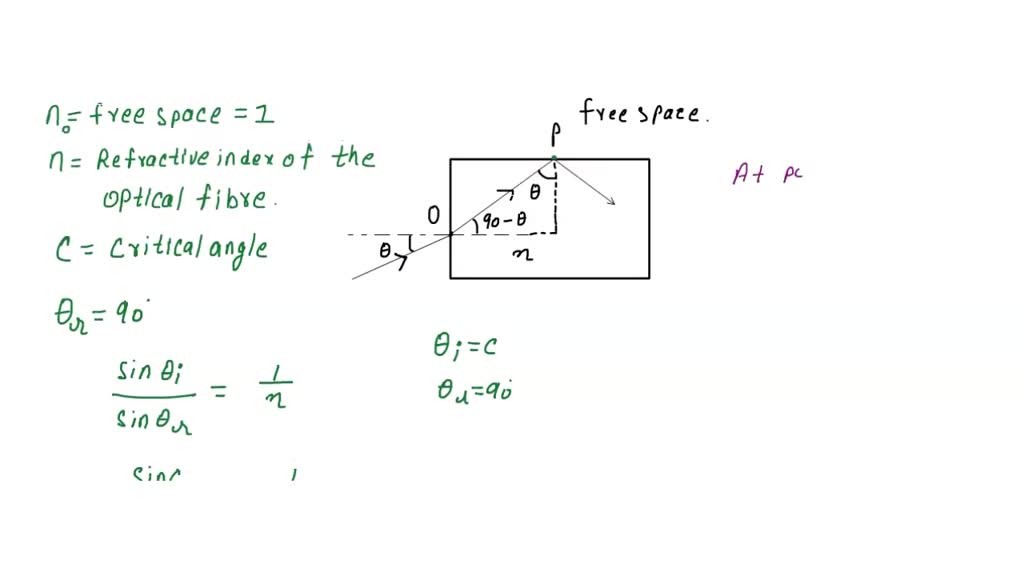 n₀ = free space = 1
n = Refractive index of the
optical fibre.
C = Critical angle
θr = 90°
sin θi / sin θr = 1/n
sinc 1
free space.
P
θ
O
90-θ
θ
n
θi = c
θr = 90°
At po